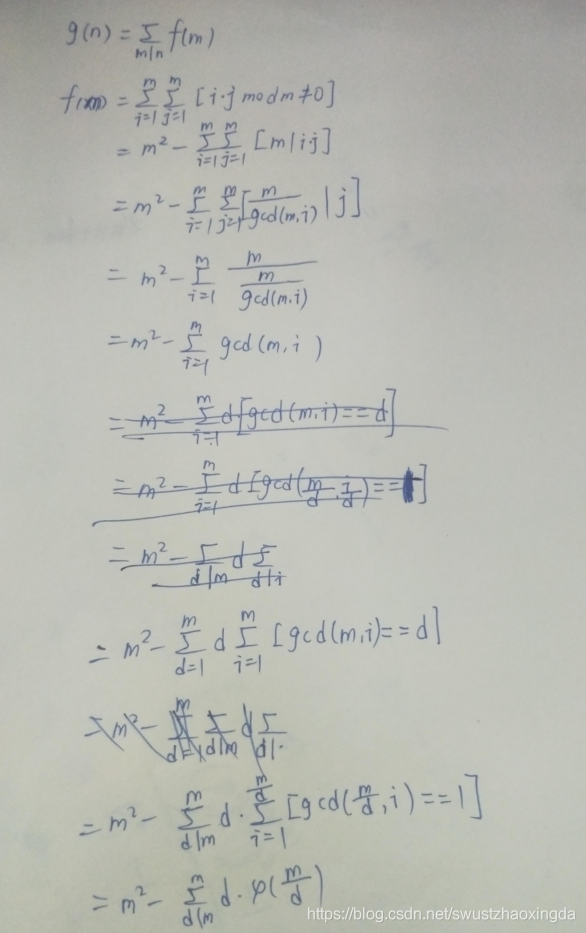 g(n) = Σ_{m|n} f(m)
f(m) = Σ_{i=1}^{m} Σ_{j=1}^{m} [i·j mod m ≠ 0]
= m² - Σ_{i=1}^{m} Σ_{j=1}^{m} [m | ij]
= m² - Σ_{i=1}^{m} Σ_{j=1}^{m} [m/gcd(m,i) | j]
= m² - Σ_{i=1}^{m} m/(m/gcd(m,i))
= m² - Σ_{i=1}^{m} gcd(m,i)
= m² - Σ_{i=1}^{m} d[gcd(m,i) == d]
= m² - Σ_{i=1}^{m} d[gcd(m/d, i/d) == 1]
= m² - Σ_{d|m} d Σ_{d|i}
= m² - Σ_{d=1}^{m} d Σ_{i=1}^{m} [gcd(m,i) == d]
= m² - Σ_{d|m} d Σ_{d|
= m² - Σ_{d|m}^{m} d · Σ_{i=1}^{m/d} [gcd(m/d, i) == 1]
= m² - Σ_{d|m}^{m} d · φ(m/d)
https://blog.csdn.net/swustzhaoxingda